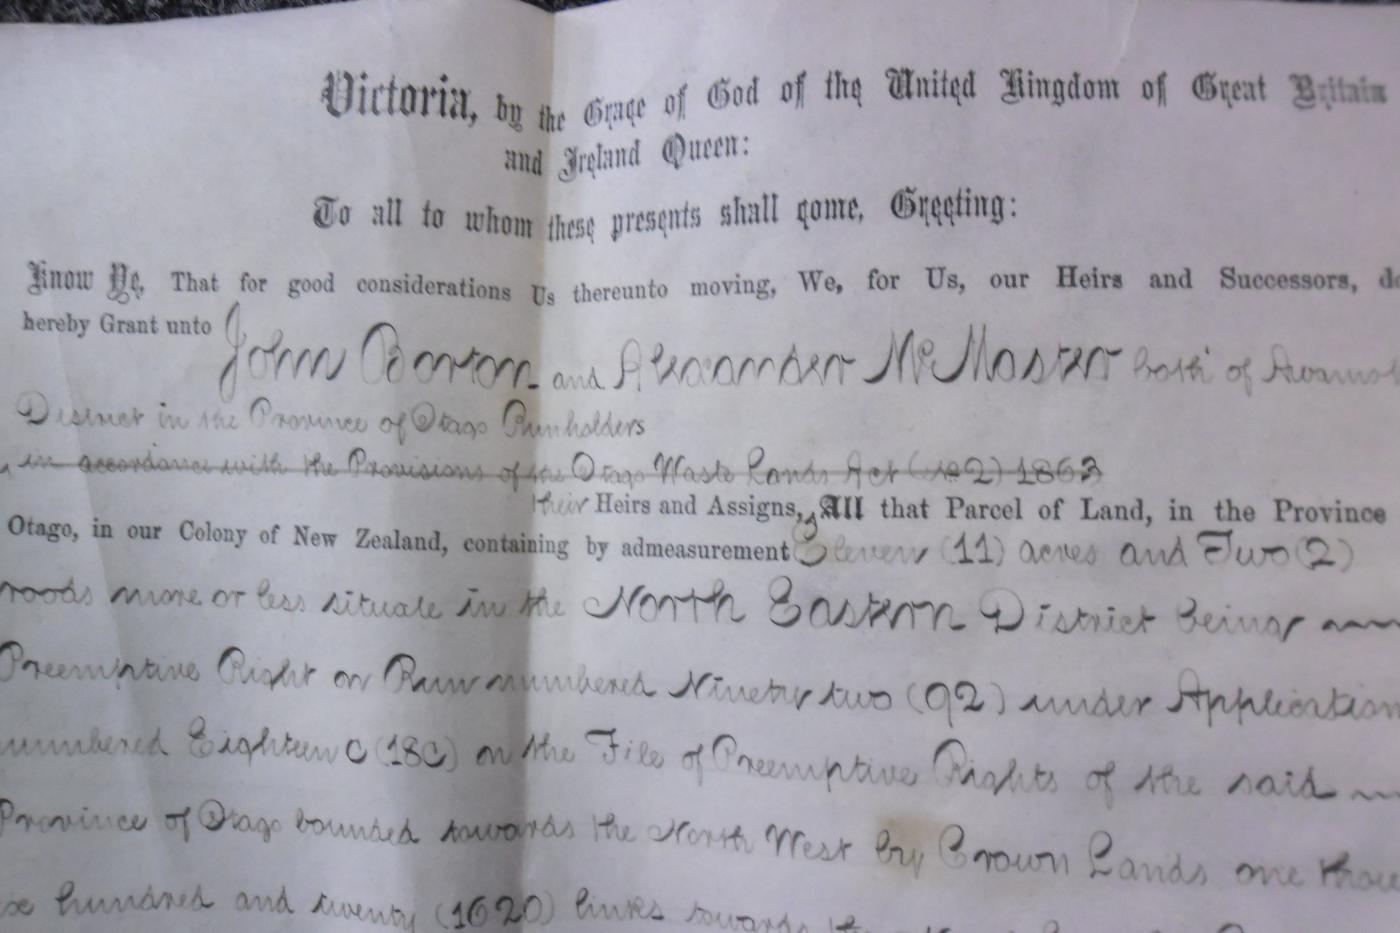 Victoria, by the Grace of God of the United Kingdom of Great Britain
and Ireland Queen:
To all to whom these presents shall come, Greeting:
Know Ye, That for good considerations Us thereunto moving, We, for Us, our Heirs and Successors, do
hereby Grant unto John Borton and Alexander McMaster both of
District in the Province of Otago Runholders
in accordance with the Provisions of the Otago Waste Lands Act (No 2) 1863
their Heirs and Assigns, All that Parcel of Land, in the Province
Otago, in our Colony of New Zealand, containing by admeasurement Eleven (11) acres and Two (2)
roods more or less situate in the North Eastern District being
Preemptive Right on Run numbered Ninety two (92) under Application
numbered Eighteen C (18C) on the File of Preemptive Rights of the said
Province of Otago bounded towards the North West by Crown Lands one
hundred and twenty (1620) links towards the